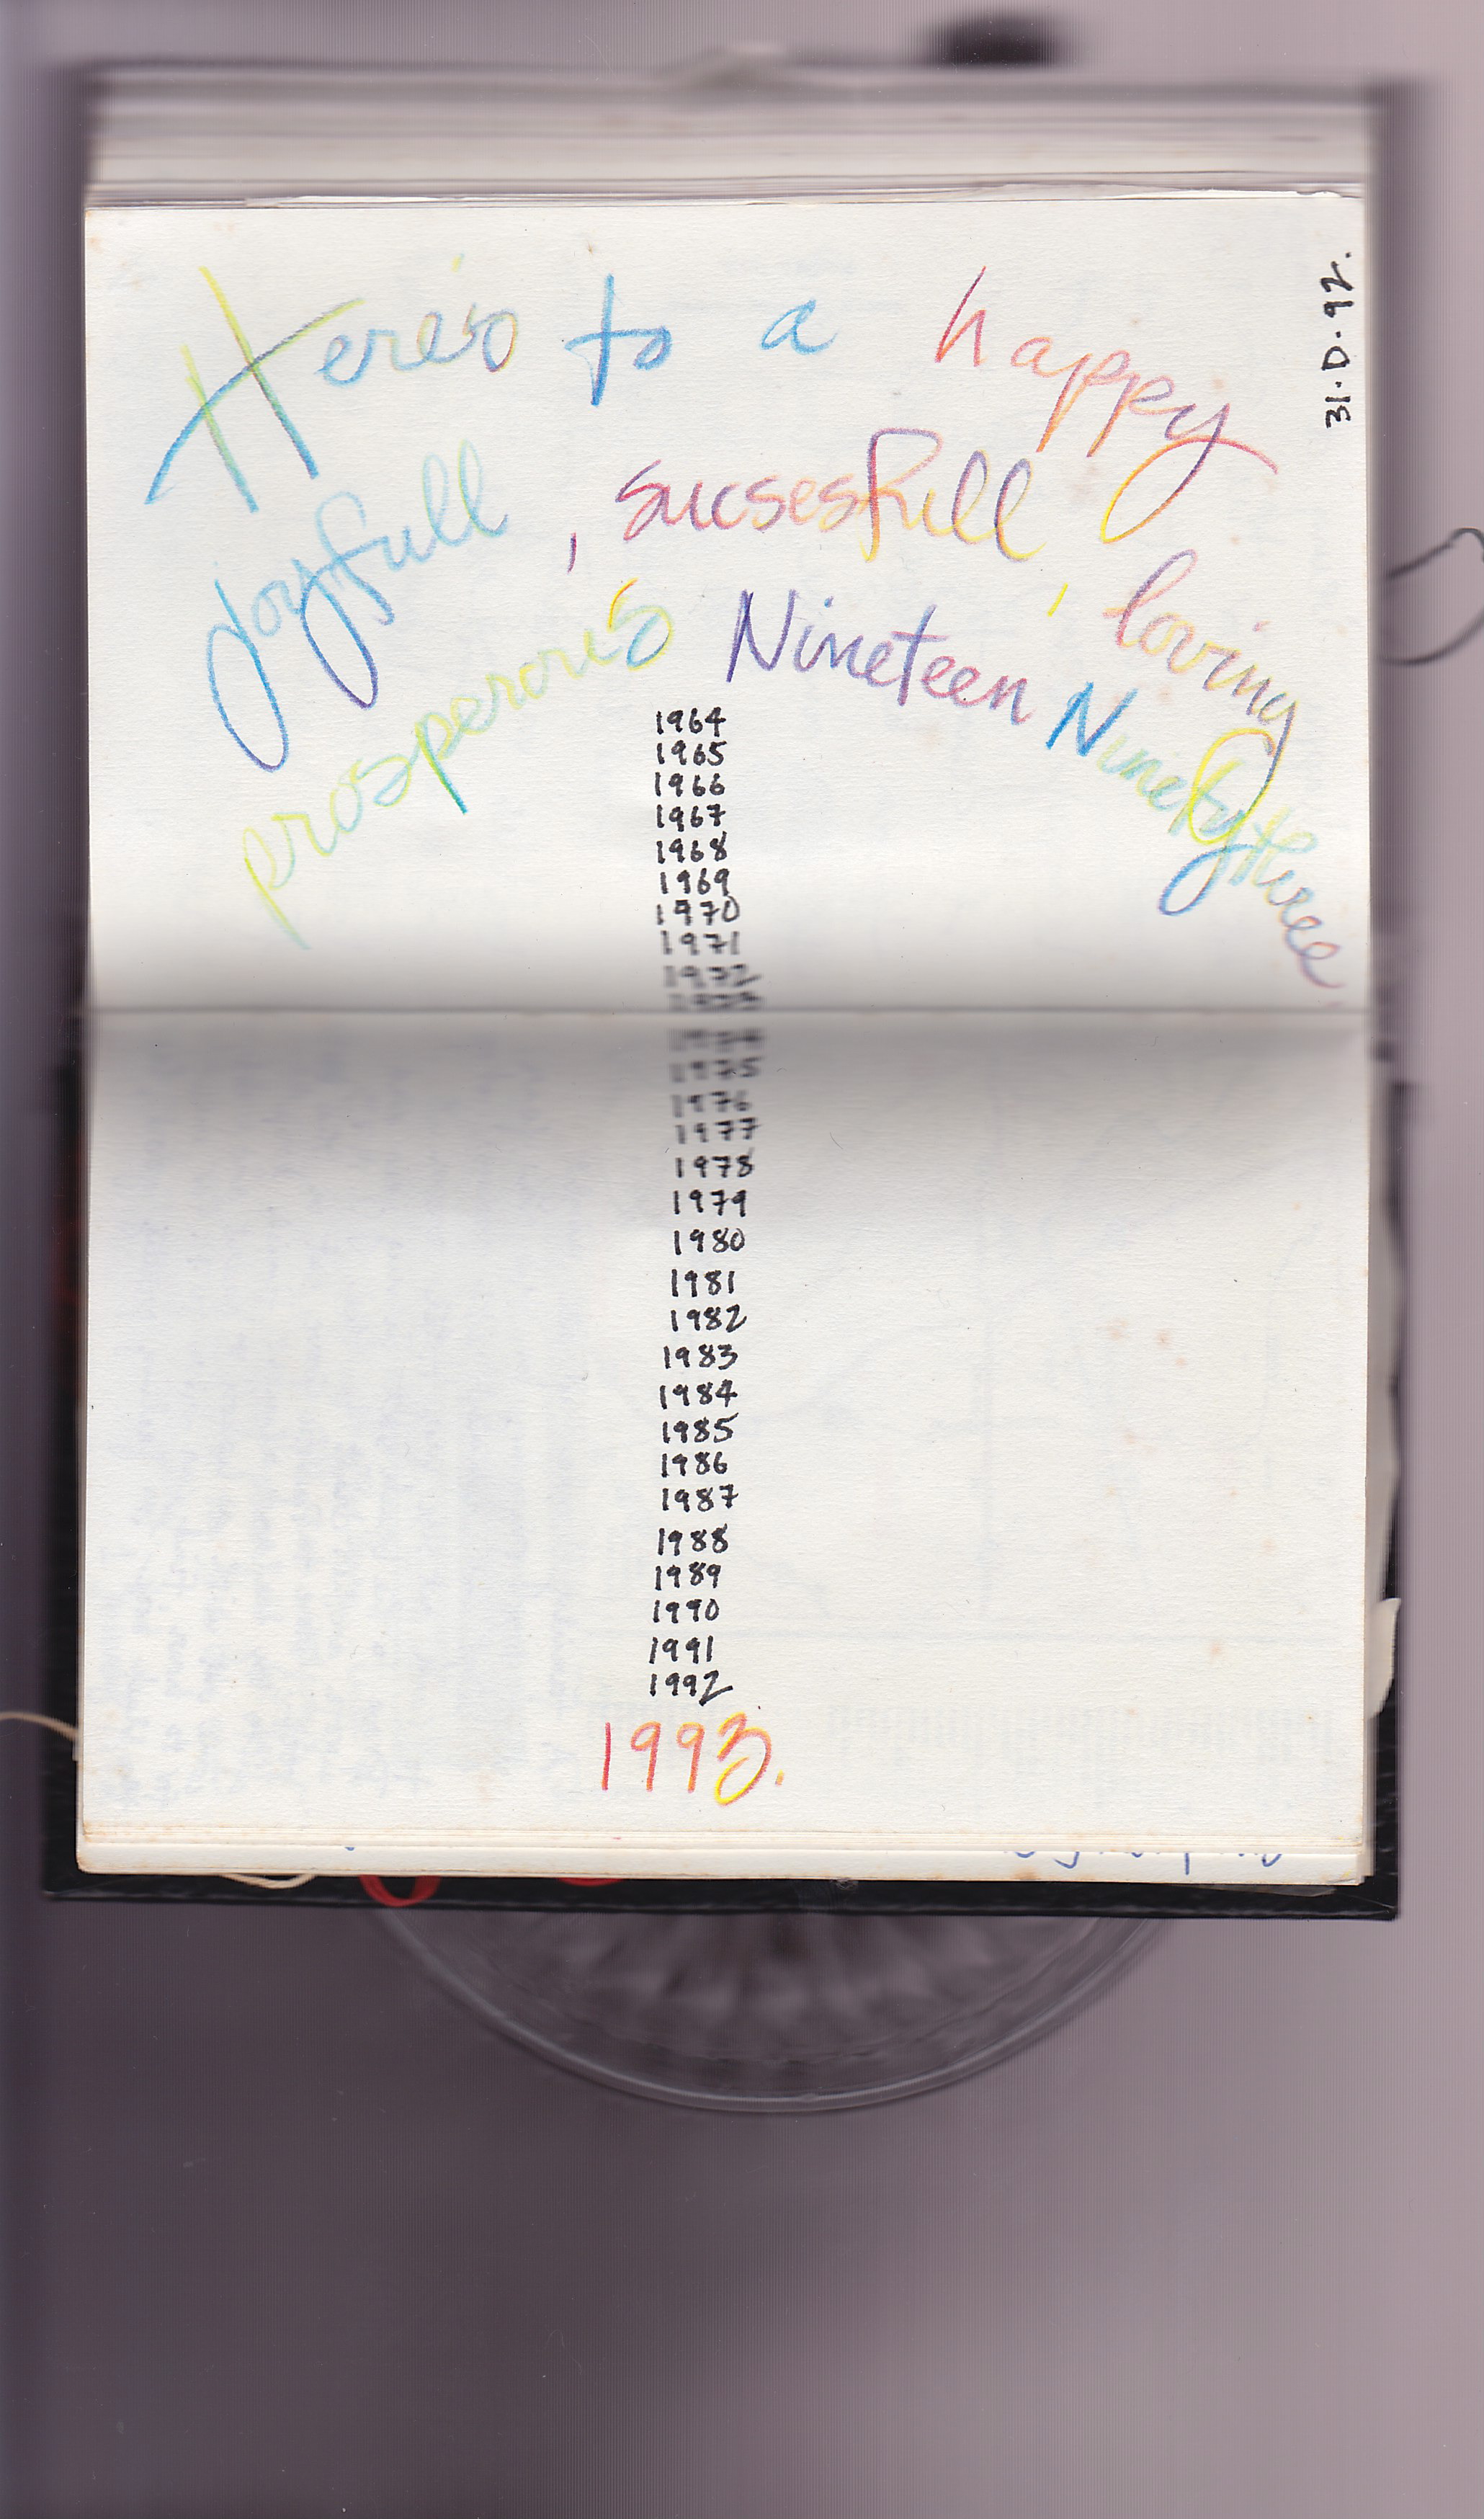 31.D.92.
Here's to a happy
joyfull, sucsesfull, loving
prosperous Nineteen Ninetythree
1964
1965
1966
1967
1968
1969
1970
1971
1972
1973
1974
1975
1976
1977
1978
1979
1980
1981
1982
1983
1984
1985
1986
1987
1988
1989
1990
1991
1992
1993.